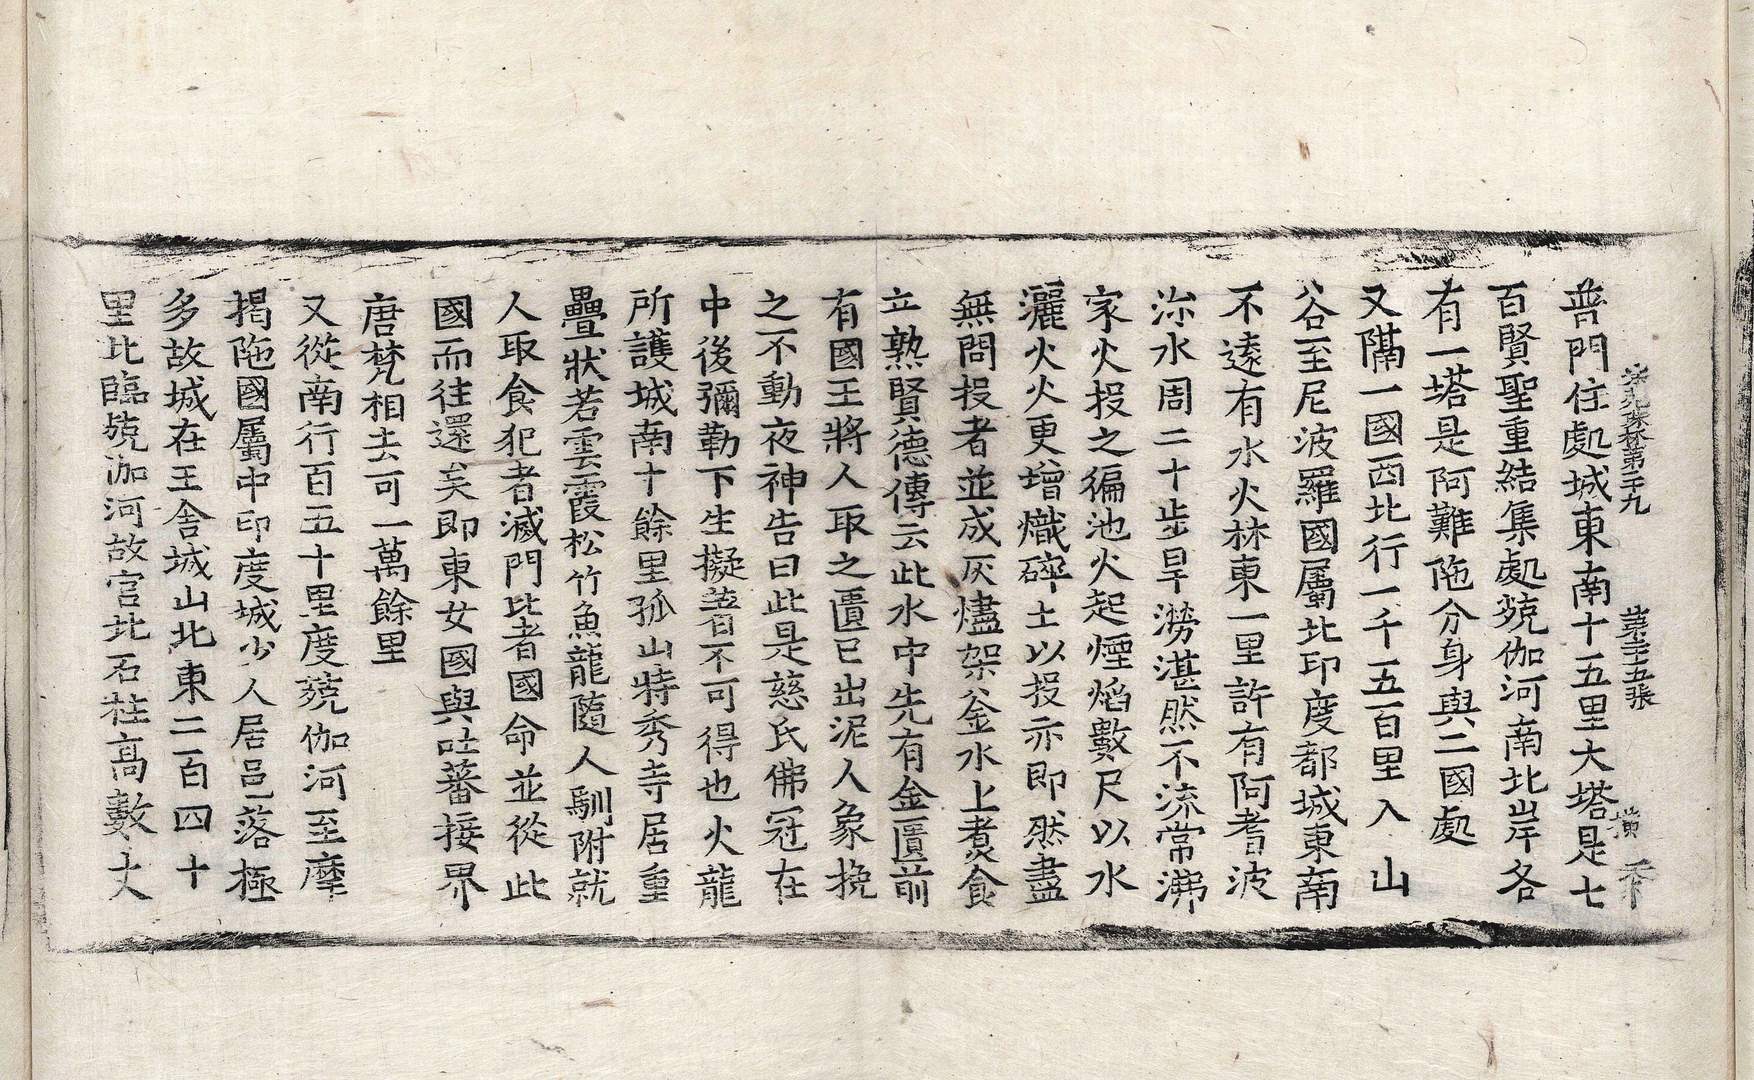 法苑珠林第二十九 第二十五張 橫
普門住處城東南十五里大塔是七
百賢聖重結集處殑伽河南北岸各
有一塔是阿難陁分身與二國處
又隔一國西北行一千五百里入山
谷至尼波羅國屬北印度都城東南
不遠有水火林東一里許有阿耆波
沵水周二十步旱澇湛然不流常沸
家火投之徧池火起煙焰數尺以水
灑火火更增熾碎土以投亦即然盡
無問投者並成灰燼架釜水上煮食
立熟賢德傳云此水中先有金匱前
有國王將人取之匱已出泥人象挽
之不動夜神告曰此是慈氏佛冠在
中後彌勒下生擬著不可得也火龍
所護城南十餘里孤山特秀寺居重
疊狀若雲霞松竹魚龍隨人馴附就
人取食犯者滅門比者國命並從此
國而往還矣即東女國與吐蕃接界
唐梵相去可一萬餘里
又從南行百五十里度殑伽河至摩
揭陁國屬中印度城少人居邑落極
多故城在王舍城山北東二百四十
里北臨殑伽河故宮北石柱高數丈